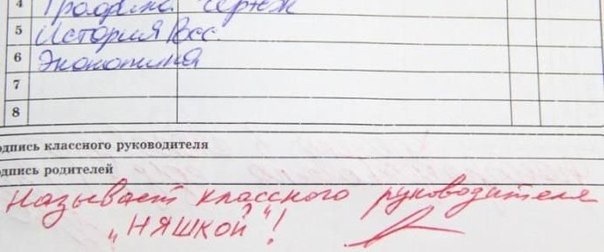 4 Графика чертеж
5 История Росс.
6 Экономика
7
8
одпись классного руководителя
одпись родителей
Называет классного руководителя
„НЯШКОЙ"!